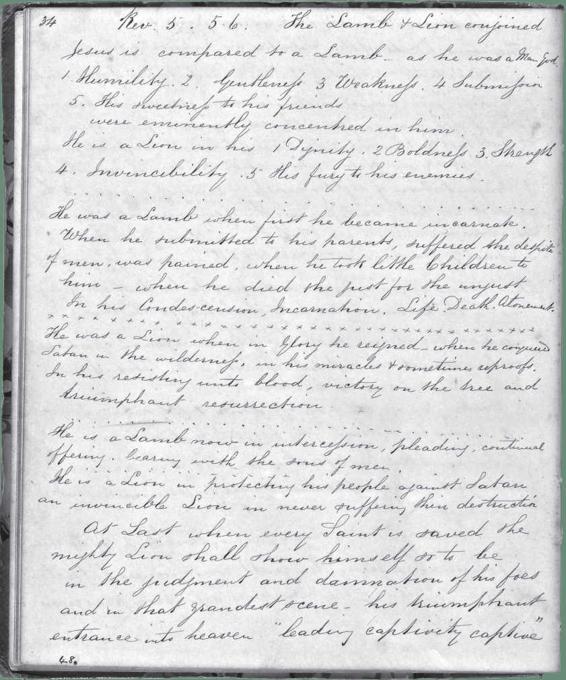 34 Rev. 5. 5 6. The Lamb & Lion conjoined
Jesus is compared to a Lamb - as he was a Man God
1. Humility. 2. Gentleness 3 Weakness. 4 Submission
5. His sweetness to his friends
were eminently concentred in him.
He is a Lion in his 1 Dignity. 2 Boldness 3. Strength
4. Invincibility. 5 His fury to his enemies.
He was a Lamb when first he became incarnate.
When he submitted to his parents, suffered the despite
of men, was pained, when he took little Children to
him - when he died the just for the unjust
In his Condescension, Incarnation, Life. Death. Atonement.
x x x x x x x x x x x x x x x x x x x x x x x x x x
He was a Lion when in glory he reigned - when he conquered
Satan in the wilderness, in his miracles & sometimes reproofs.
In his resisting unto blood, victory on the tree and
triumphant resurrection
He is a Lamb now in intercession, pleading, continual
offering. bearing with the sons of men.
He is a Lion in protecting his people against Satan
an invincible Lion in never suffering their destruction
At Last when every Saint is saved the
mighty Lion shall show himself so to be
in the judgment and damnation of his foes
and in that grandest scene - his triumphant
entrance into heaven "leading captivity captive"
48.